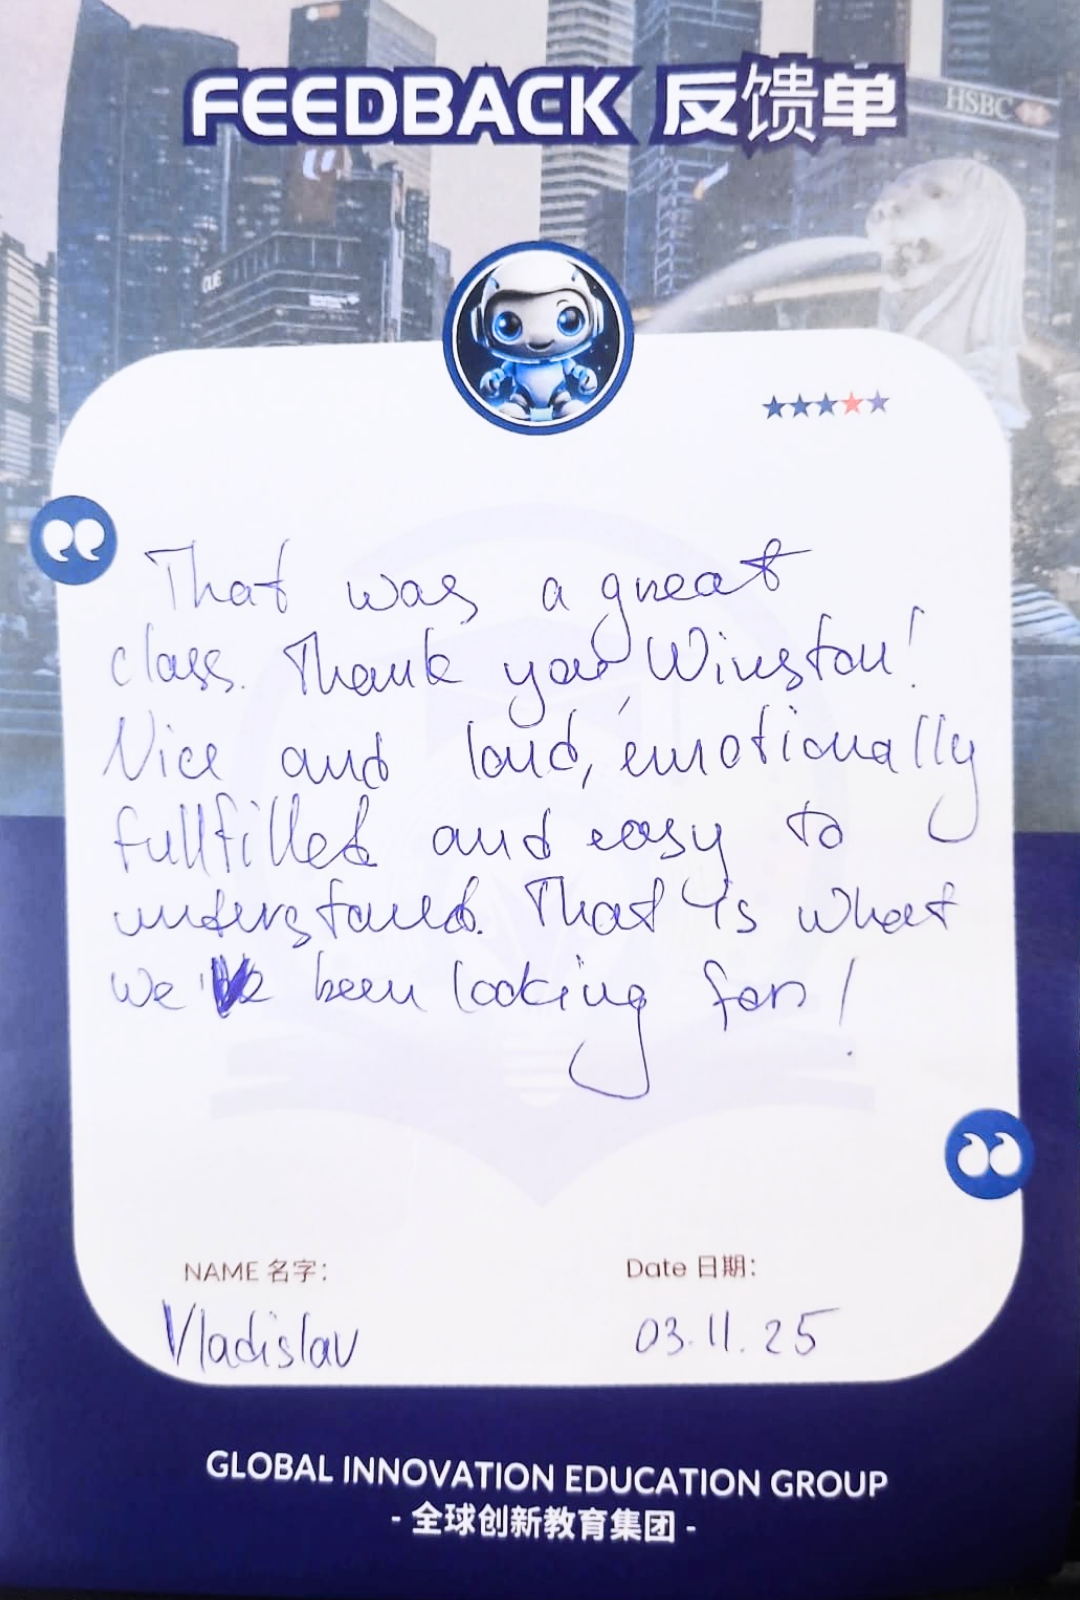 FEEDBACK 反馈单
HSBC
That was a great
class. Thank you, Winston!
Nice and loud, emotionally
fullfilled and easy to
understand. That is what
we've been looking for!
NAME 名字:
Date 日期:
Vladislav
03.11.25
GLOBAL INNOVATION EDUCATION GROUP
- 全球创新教育集团 -